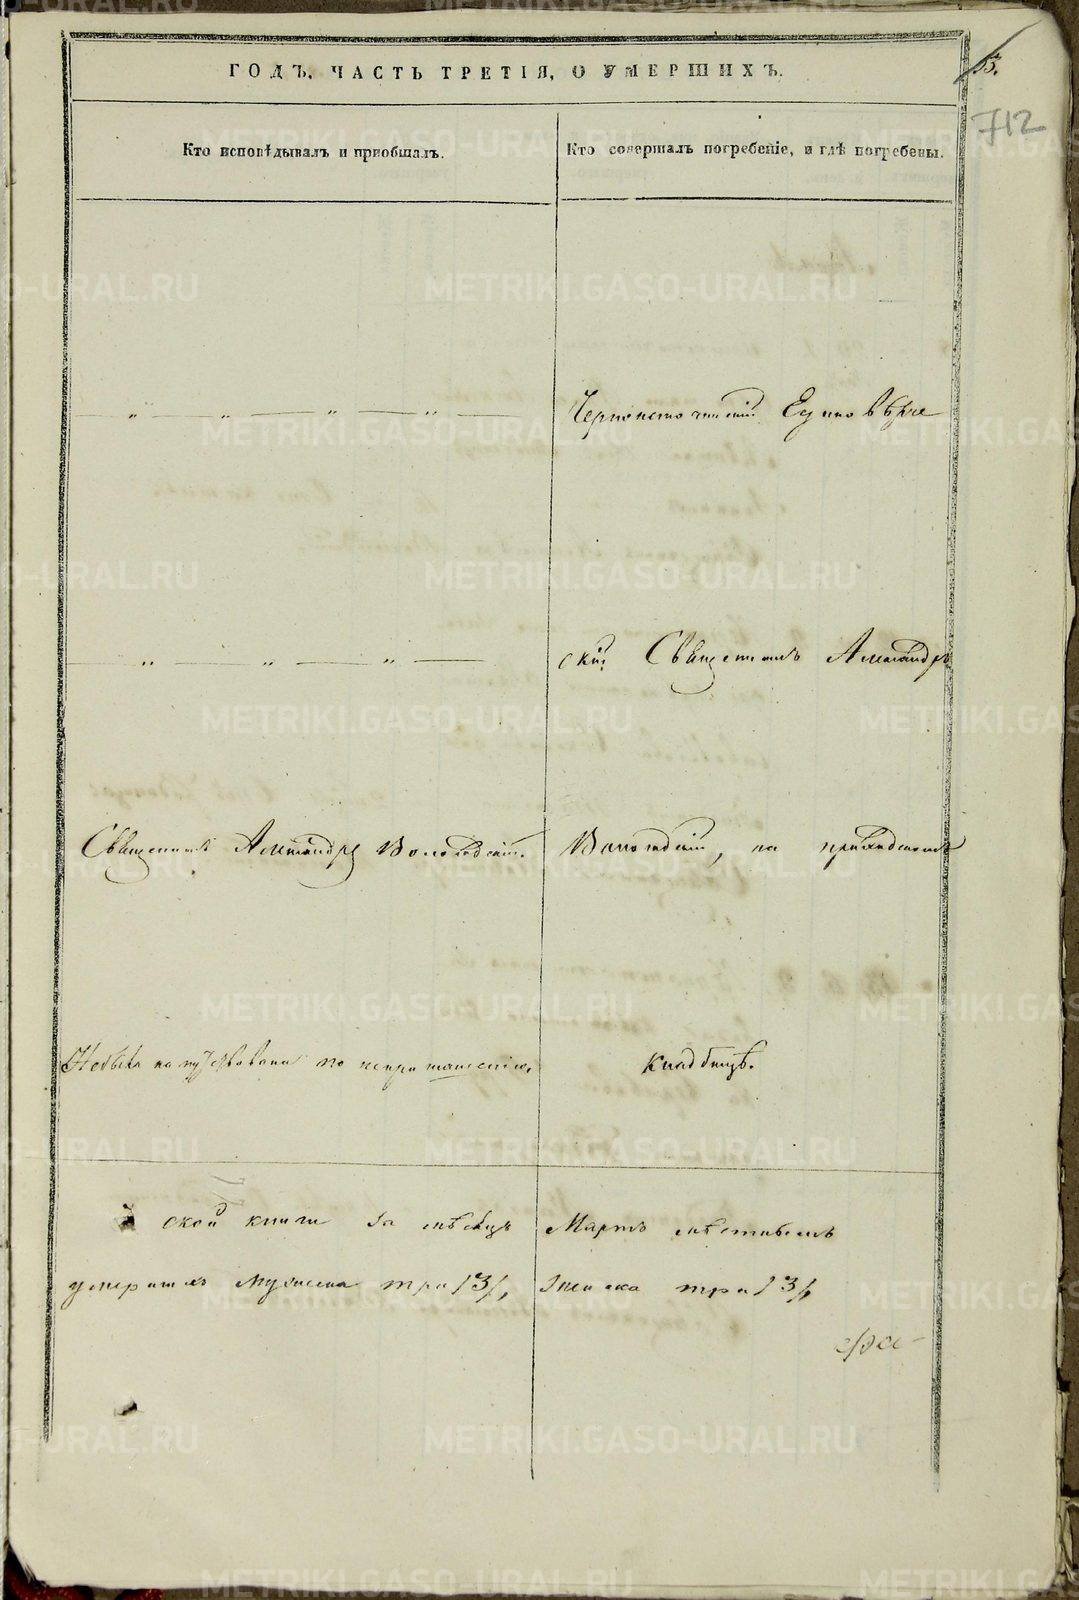 ГОДЪ, ЧАСТЬ ТРЕТІЯ, О УМЕРШИХЪ.
53.
712
Кто исповѣдывалъ и пріобщалъ.
Кто совершалъ погребеніе, и гдѣ погребены.
Черноисточинскій Единовѣрче
скій Священникъ Александръ
Священникъ Александръ Вологодскій.
Вологодскій, на приходскомъ
Небылъ напутствованъ по
кладбищѣ.
ской книги за мѣсяцъ Мартъ
умершихъ мужеска три /3/, женска три /3/,
METRIKI.GASO-URAL.RU